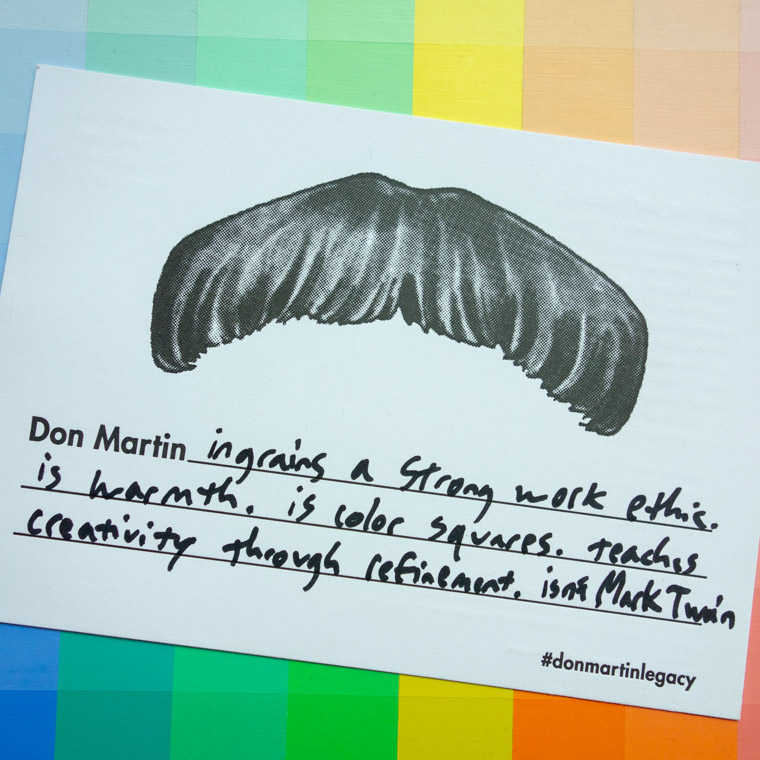 Don Martin ingrains a strong work ethic.
is warmth. is color squares. teaches
creativity through refinement. isn't Mark Twain
#donmartinlegacy